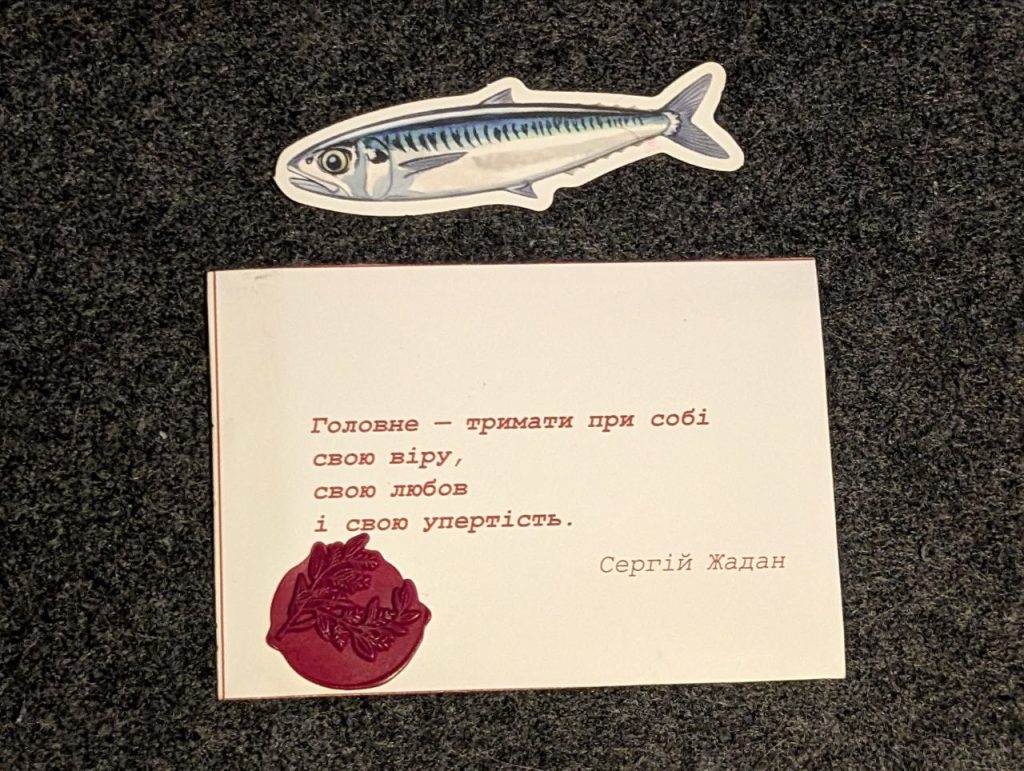 Головне — тримати при собі
свою віру,
свою любов
і свою упертість.
Сергій Жадан